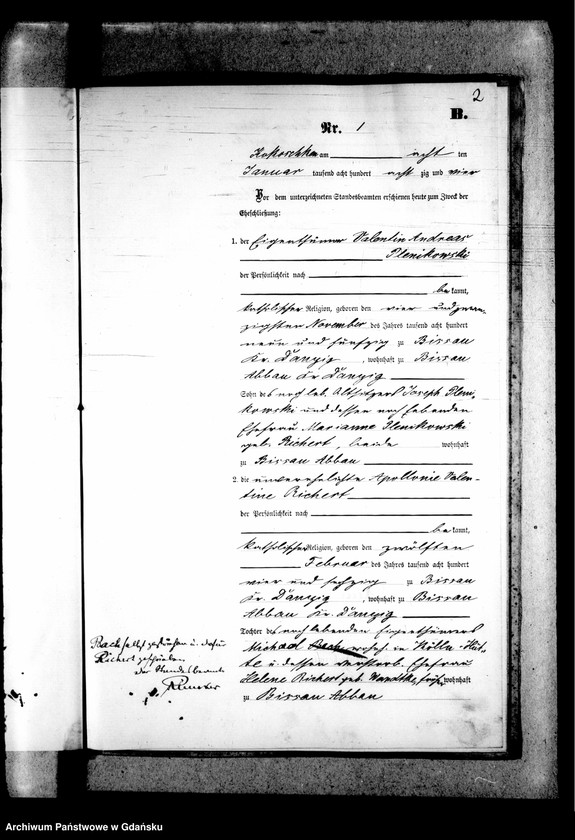 2
B.
Nr. 1
Kokoschken am acht ten
Januar tausend acht hundert acht zig und vier
Vor dem unterzeichneten Standesbeamten erschienen heute zum Zweck der
Eheschließung:
1. der Eigenthümer Valentin Andreas
Plenikowski
der Persönlichkeit nach
be kannt,
katholischer Religion, geboren den vier und zwan-
zigsten November des Jahres tausend acht hundert
neun und fünfzig zu Bissau
Kr. Danzig, wohnhaft zu Bissau
Abbau Kr. Danzig
Sohn des noch leb. Altsitzers Joseph Pleni-
kowski und dessen noch lebenden
Ehefrau Marianne Plenikowski
geb. Richert, beide wohnhaft
zu Bissau Abbau
2. die unverehelichte Apollonie Valen-
tine Richert
der Persönlichkeit nach
be kannt,
katholischer Religion, geboren den zwölften
Februar des Jahres tausend acht hundert
vier und sechzig zu Bissau
Kr. Danzig, wohnhaft zu Bissau
Abbau Kr. Danzig
Tochter des noch lebenden Eigenthümers
Michael Bach in Kölln
u dessen verstorb. Ehefrau
Helene Richert geb. früh. wohnhaft
zu Bissau Abbau
Bach gestrichen u. dafür
Richert geschrieben
der Standesbeamte
Archiwum Państwowe w Gdańsku